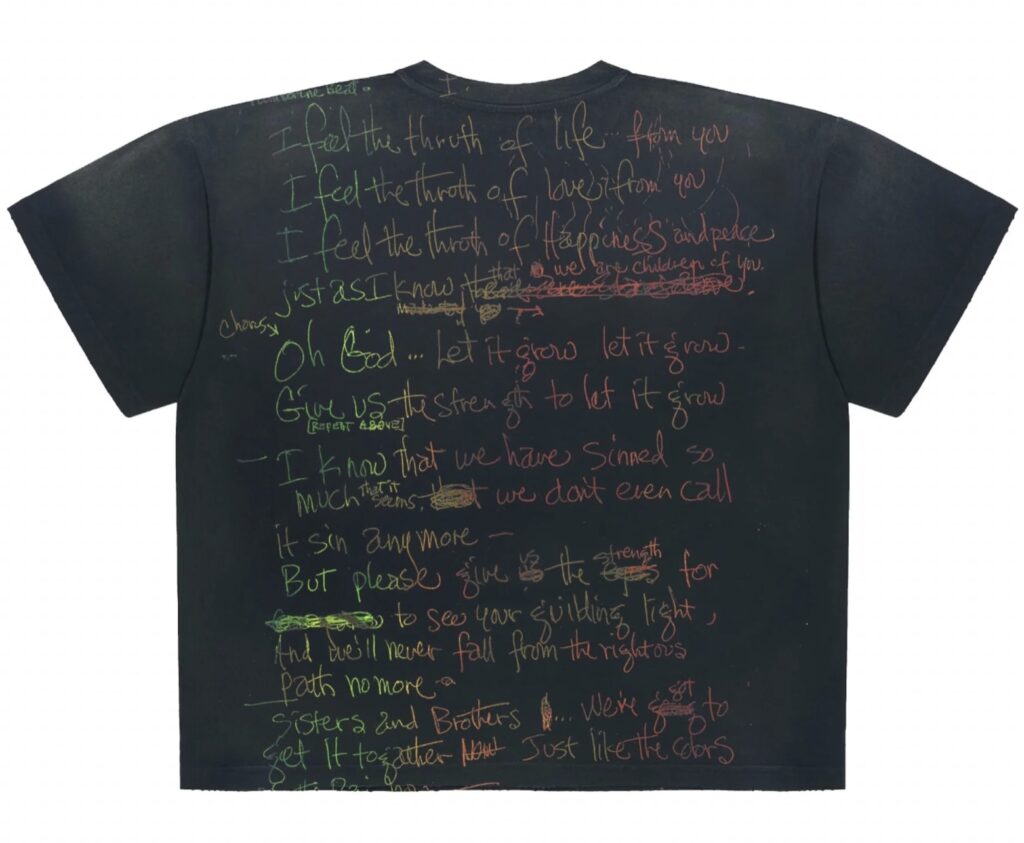 I.
I feel the throth of life... from you
I feel the throth of love, from you
I feel the throth of Happiness and peace
that we are children of you.
just as I know
Chorus
Oh God... Let it grow let it grow -
Give us the strength to let it grow
[REPEAT ABOVE]
- I know that we have sinned so
much that it seems, we don't even call
it sin anymore -
us strength
But please give the for
to see your guilding light,
And we'll never fall from the rightous
path no more -
got
Sisters and Brothers ... We've to
get It together Just like the colors